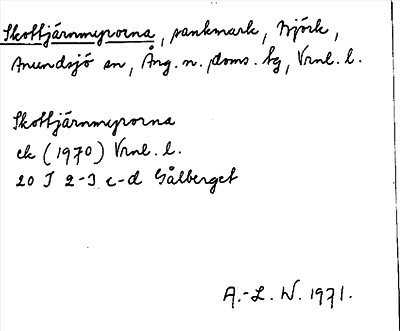 Skottjärnmyrorna, sankmark, Björk,
Anundsjö sn, Ång. n. doms. hg, Vrnl. l.
Skottjärnmyrorna
ek (1970) Vrnl. l.
20 J 2-3 c-d Gålberget
A.-L. W. 1971.